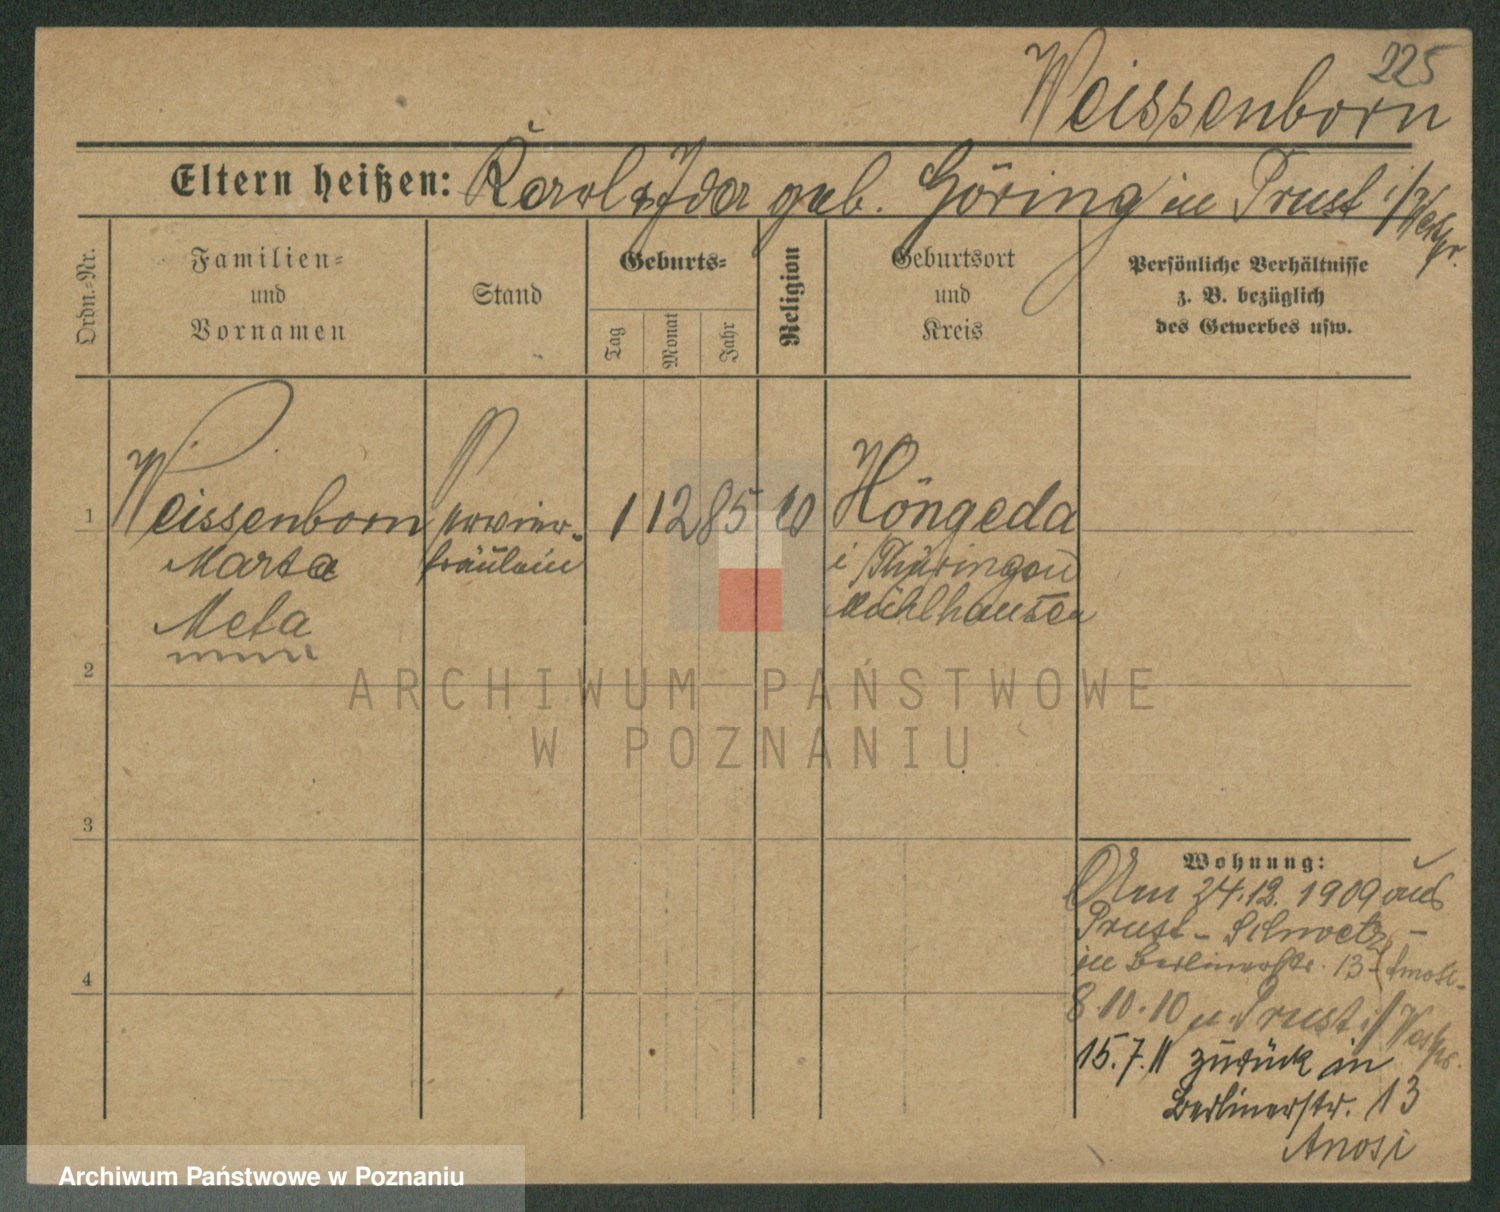 225
Weissenborn
Eltern heißen: Karl & Ida geb. Göring in Prust i/Westpr.
Ordn.-Nr.
Familien-
und
Vornamen
Stand
Geburts-
Tag
Monat
Jahr
Religion
Geburtsort
und
Kreis
Persönliche Verhältnisse
z. B. bezüglich
des Gewerbes usw.
1
Weissenborn
Marta
Meta
fräulein
1 12 85
Höngeda
i/Thüringen
Mühlhausen
2
3
4
Wohnung:
Am 24.12.1909 aus
Prust - Schwetz -
in Berlinerstr. 13
8.10.10 n. Prust i/Westpr.
15.7.11 zurück in
Berlinerstr. 13
ARCHIWUM PAŃSTWOWE
W POZNANIU
Archiwum Państwowe w Poznaniu